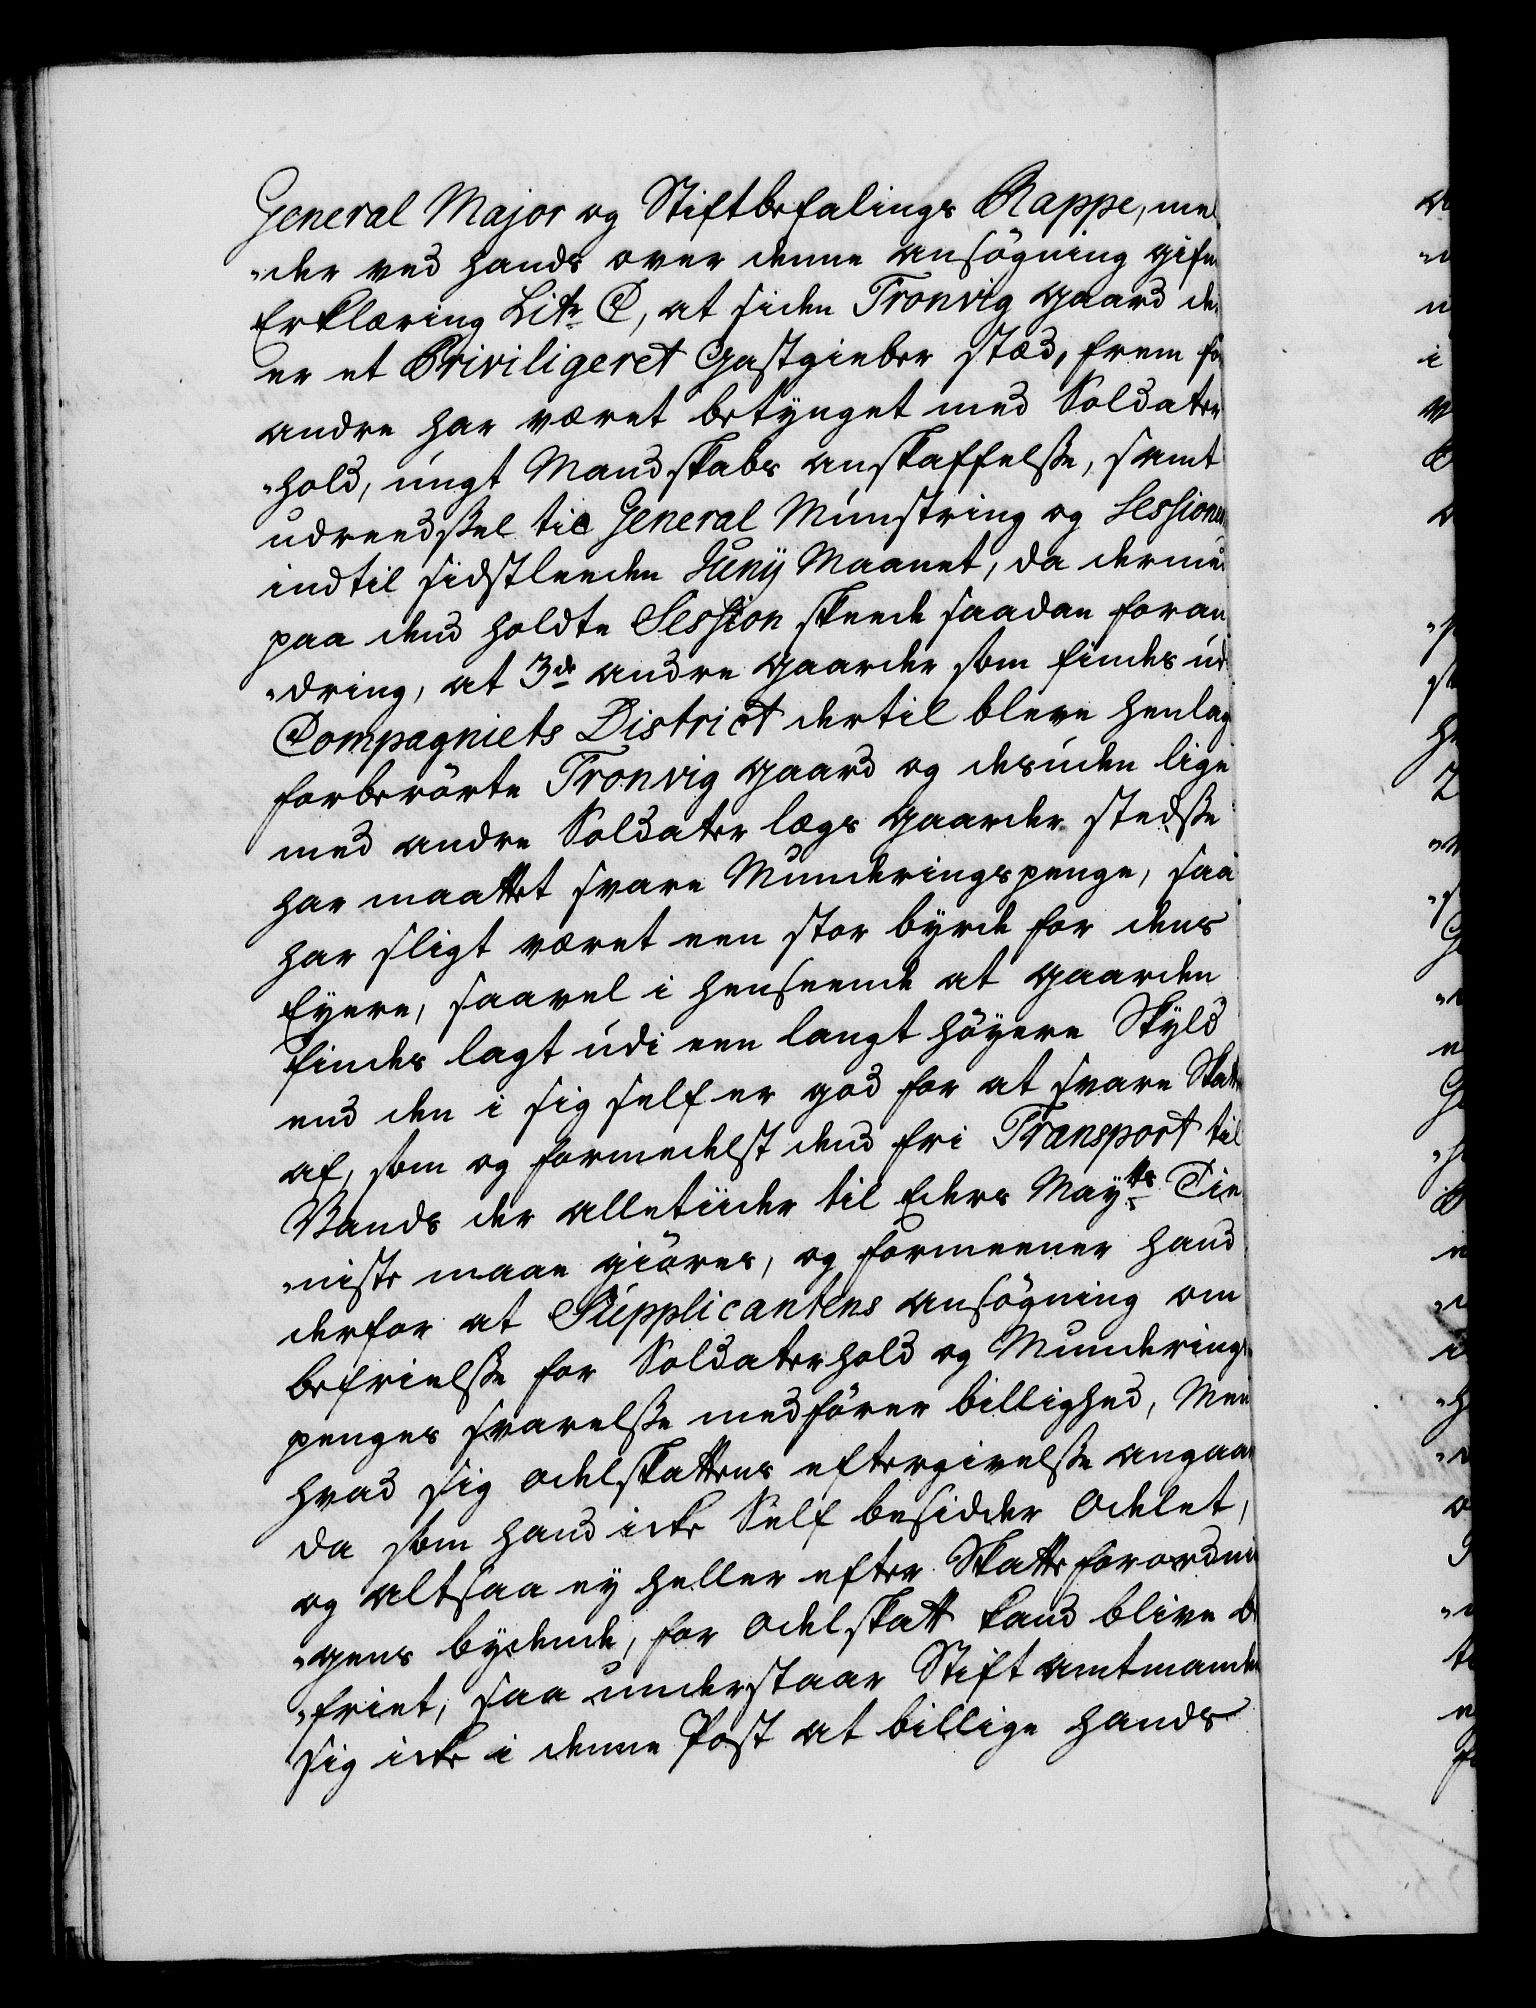 General Major og Stiftbefalings Rappe, mel
„der ved hands over denne ansögning gifne
Erklæring Litr C, at siden Tronvig gaard der
er et Priviligeret Gastgieber stæd, frem for
andre har været betynget med Soldater
„hold, ungt Mandskabs anskaffelsse, samt
udreedssel til General Munstring og Sessioner
indtil sidstleeden Juny Maanet, da dermed
paa dend holdte Session skeede saadan foran
„dring, at 3de andre gaarder som findes ud
Compagniets District dertil bleve henlag
forberörte Tronvig gaard og desuden lige
med andre Soldater lægs gaarder stedsse
har maattet svare Munderings penge, saa
har sligt været een stor byrde for dens
Eyere, saavel i henseende at gaarden
findes lagt udi een langt höyere Skyld
end den i sig self er god for at svare Skatter
af, som og formedelst dend fri Transport til
Vands der alletiider til Eders Mayts Tie
„niste maae giöres, og formeener hand
derfor at Supplicantens ansögning om
befrielsse for Soldaterhold og Munderings
penges svarelsse medförer billighed, Men
hvad sig odelskattens eftergivelsse angaar
da som hand icke Self besidder Odelet,
og altsaa ey heller efter Skatteforordnin
„gens bydende, for Odelskatt kand blive be
„friet, saa understaar Stiftamtmanden
sig icke i denne Post at billige hands